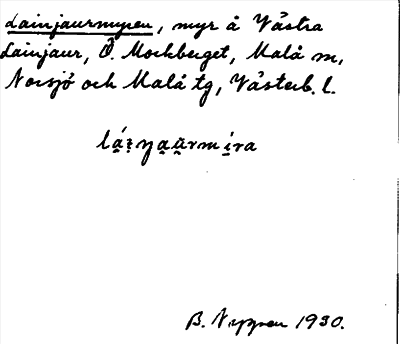 Lainjaurmyren, myr å Västra
Lainjaur, Ö. Mockberget, Malå m,
Norsjö och Malå tg, Västerb. l.
B. Nyppen 1930.